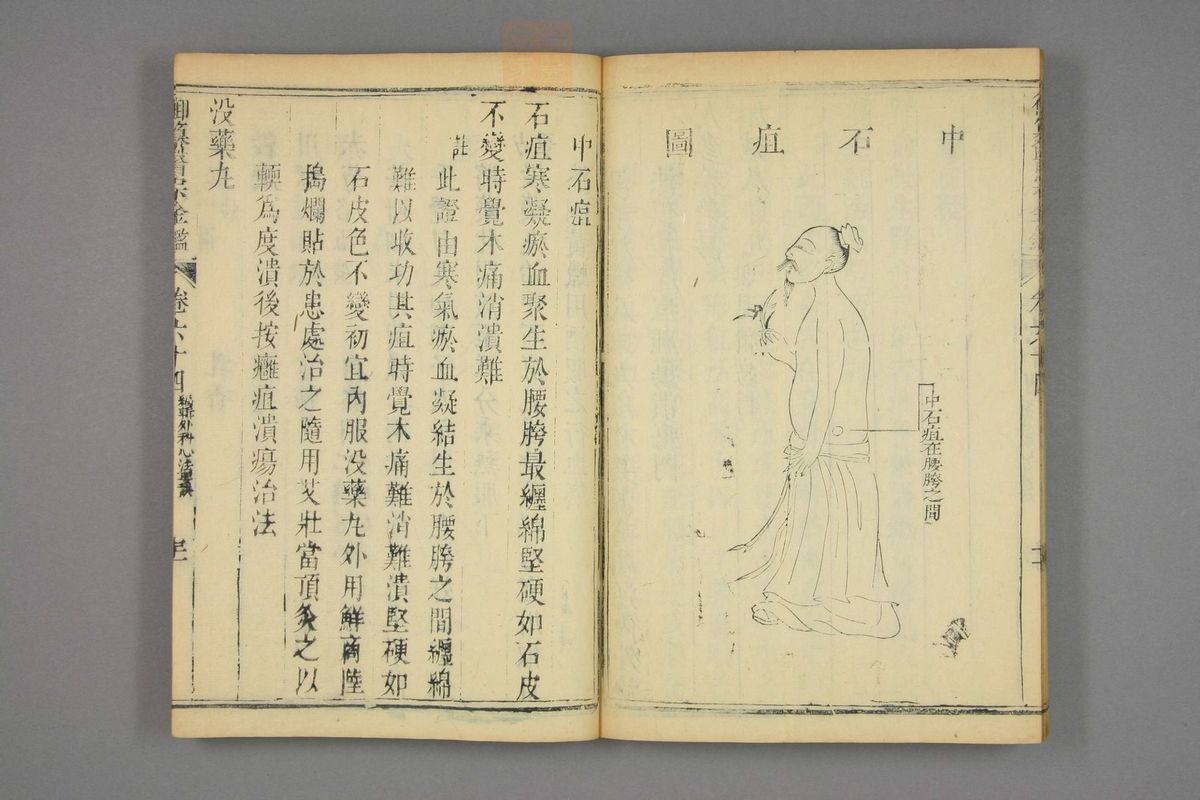 中石疽圖
中石疽在腰胯之間
中石疽
石疽寒凝瘀血聚生於腰胯最纏綿堅硬如石皮
不變時覺木痛消潰難
註
此證由寒氣瘀血凝結生於腰胯之間纏綿
難以收功其疽時覺木痛難消難潰堅硬如
石皮色不變初宜內服没藥丸外用鮮商陸
搗爛貼於患處治之隨用艾壯當頂灸之以
輭為度潰後按癰疽潰瘍治法
没藥丸
御纂醫宗金鑑 卷六十四 編輯外科心法要訣